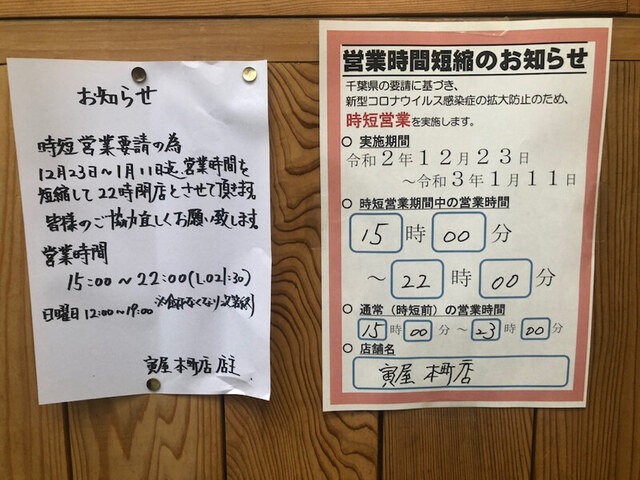 お知らせ
時短営業要請の為
12月23日〜1月11日迄、営業時間を
短縮して22時閉店とさせて頂きます。
皆様のご協力宜しくお願い致します。
営業時間
15:00〜22:00(L.O21:30)
日曜日 12:00〜19:00
寅屋 本町店 店主
営業時間短縮のお知らせ
千葉県の要請に基づき、
新型コロナウイルス感染症の拡大防止のため、
時短営業を実施します。
○ 実施期間
令和2年12月23日
〜令和3年1月11日
○ 時短営業期間中の営業時間
15時00分
〜22時00分
○ 通常(時短前)の営業時間
15時00分〜23時00分
○ 店舗名
寅屋 本町店